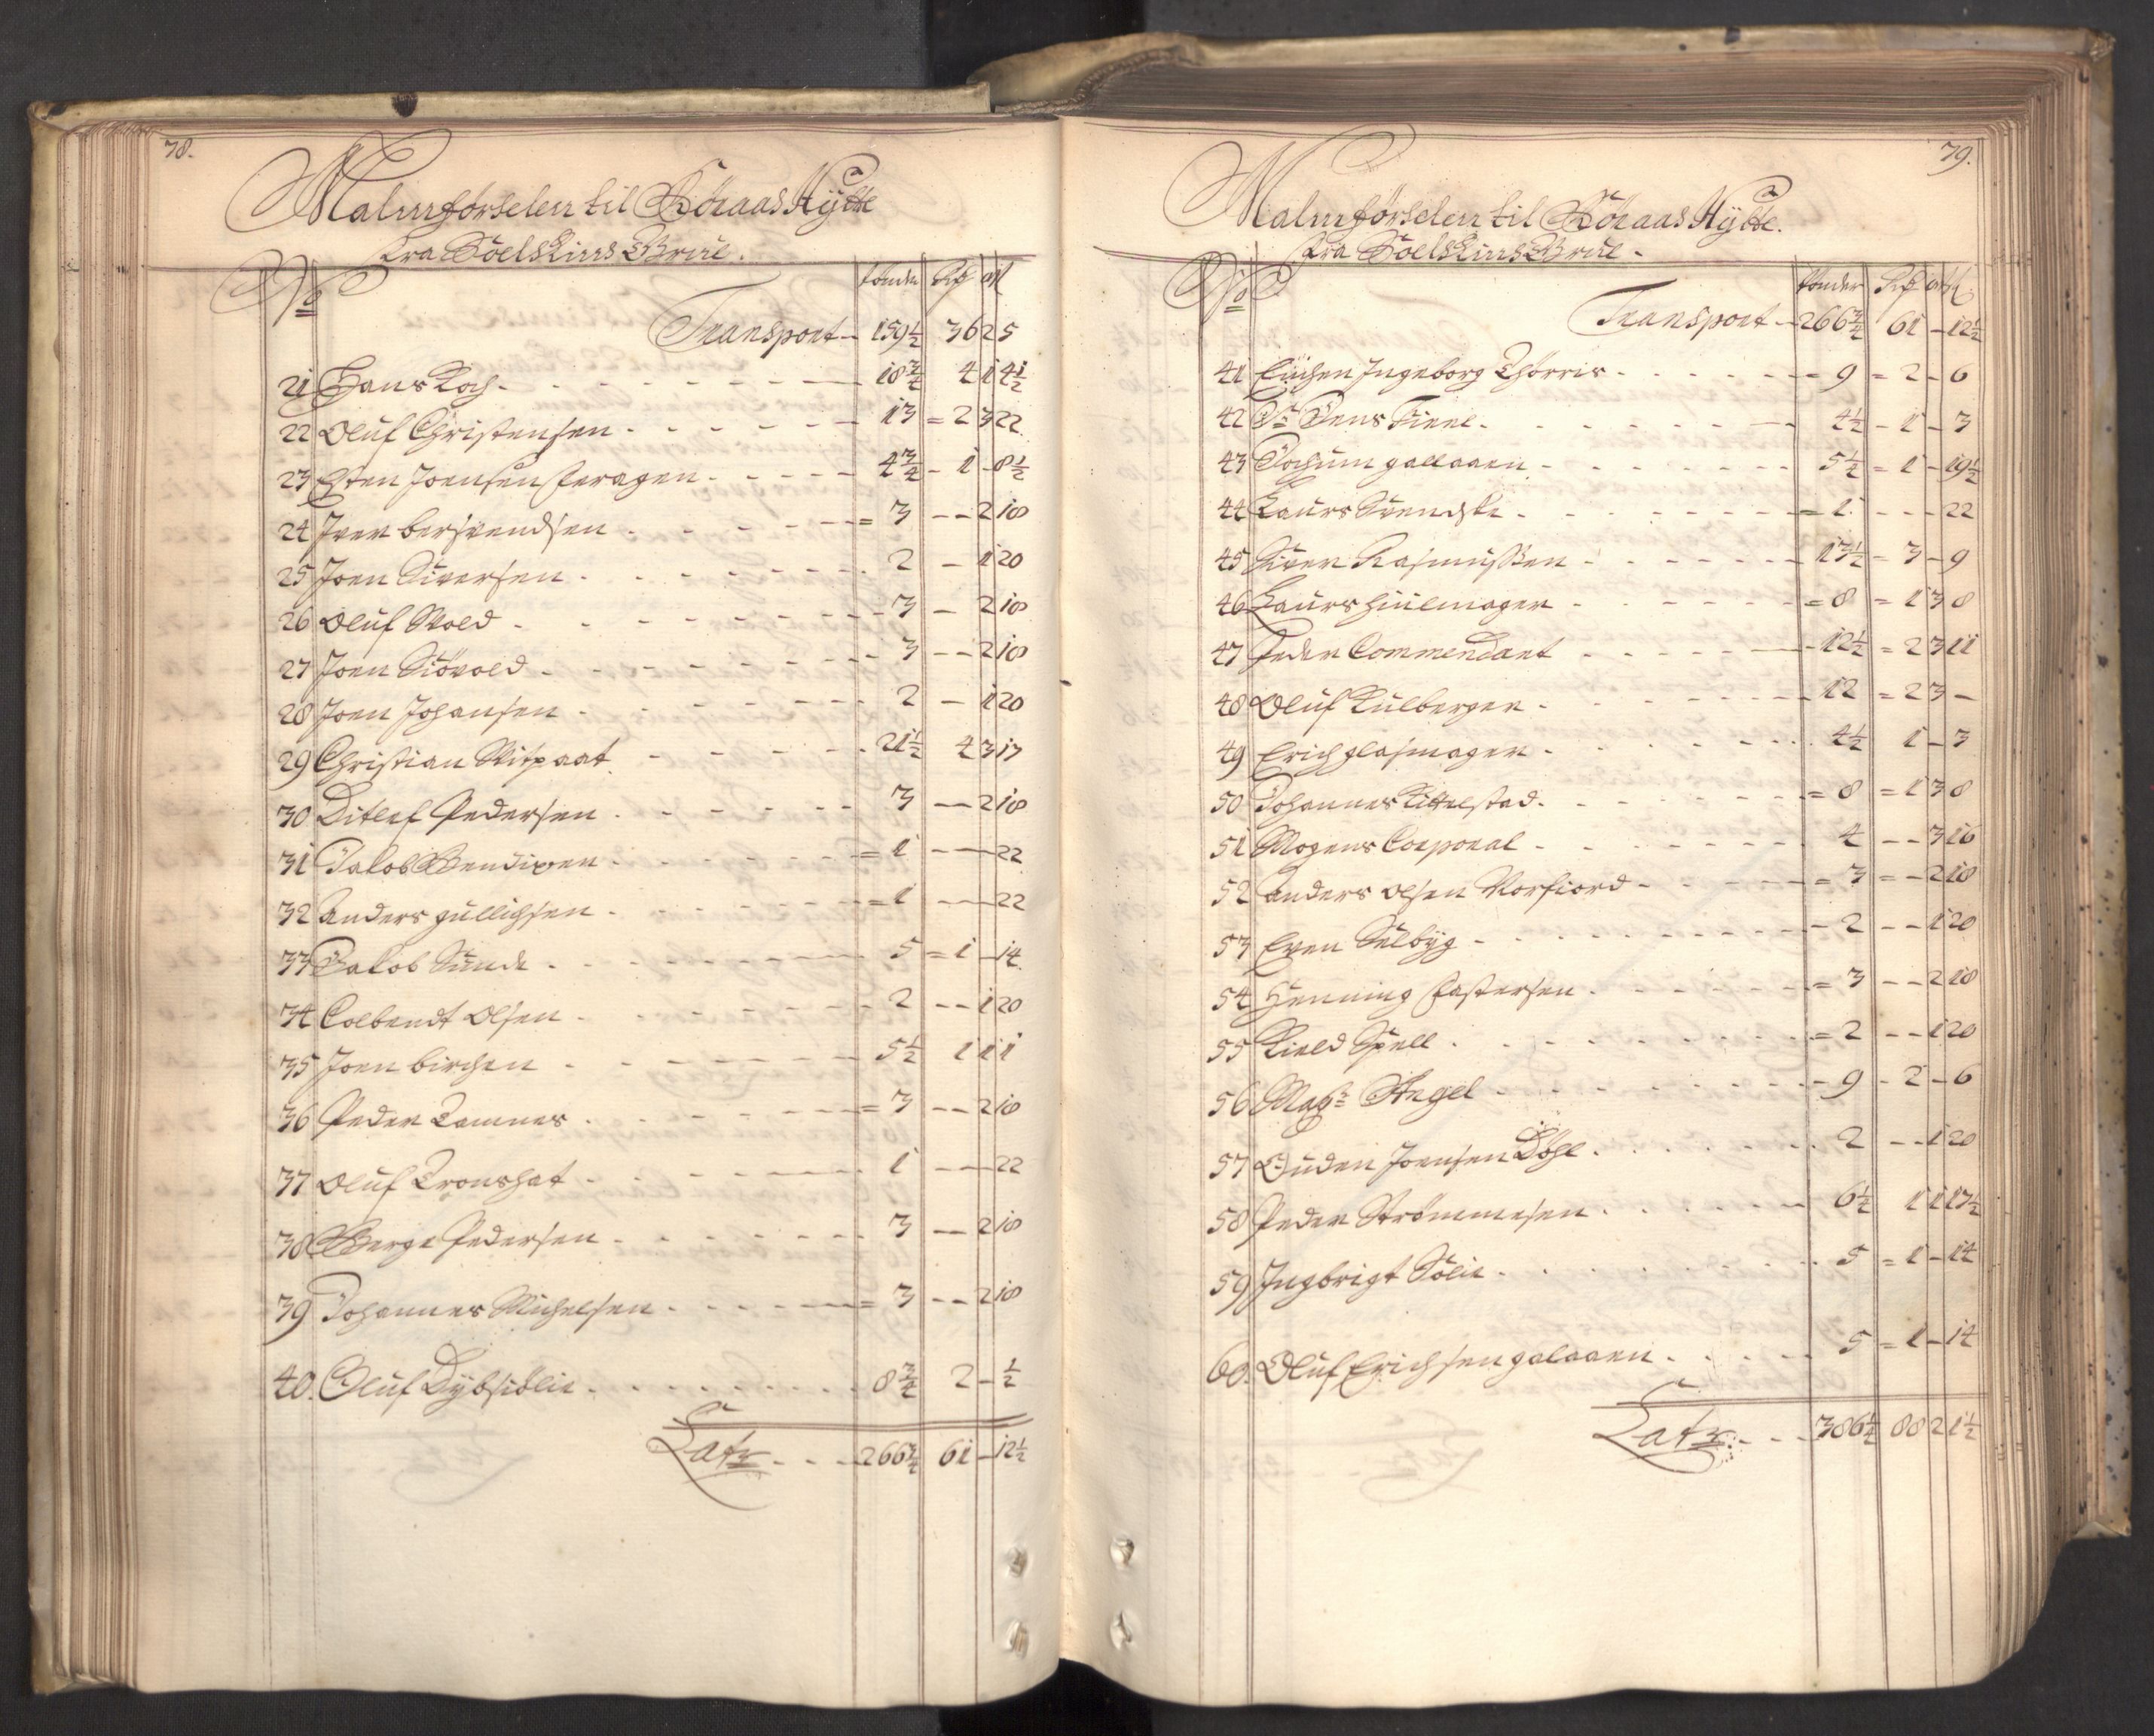 78.
Malmførselen til Röraas Hÿtte
fra Soelskins Grue.
No
tønder Rdr ort ß
Transport - 159½ 36 2 5
21 Hans Koch - 18¾ 4 1 4½
22 Oluf Christensen - 13 = 2 3 22
23 Esten Joensen - 4¾ - 1 - 8½
24 Iver bersvendsen - = 3 - - 2 18
25 Joen Siversen - 2 - 1 20
26 Oluf Wold - 3 - 2 18
27 Joen Siövold - 3 - - 2 18
28 Joen Johansen - 2 - 1 20
29 Christian - 21½ 4 3 17
30 Ditlef Pedersen - 3 - 2 18
31 Jakob Bendixen - = 1 - - 22
32 Anders gullichsen - = 1 - - 22
33 Jakob Sunde - 5 = 1 - 14
34 Colbendt Olsen - 2 - - 1 20
35 Joen birchen - 5½ 1 1 1
36 Peder Tamnes - = 3 - - 2 18
37 Oluf Tronshat - 1 - - 22
38 Berge Pedersen - 3 - 2 18
39 Johannes Michelsen - = 3 - - 2 18
40. Oluf Dÿbsiölie - 8¾ 2 - ½
Latr - 266¾ 61 - 12½
79.
Malmførselen til Röraas Hÿtte.
fra Soelskins Grue -
No
tønder Rdr ort ß
Transport - 266¾ 61 - 12½
41 Enchen Ingeborg Thorris - 9 = 2 - 6
42 Sr Jens Finne - 4½ - 1 - 3
43 Jochum gallaaen - 5½ = 1 - 19½
44 Laurs Svendske - = 1 - - - 22
45 Siver Rasmussen - 13½ = 3 - 9
46 Laurs hiulmager - = 8 = 1 3 8
47 Peder Commendant - 12½ = 2 3 11
48 Oluf Kulberger - 12 = 2 3 -
49 Erich glasmager - 4½ 1 - 3
50 Johannes Kittelstad - = 8 = 1 3 8
51 Mogens Corporal - 4 - - 3 16
52 Anders Olsen - = 3 = - 2 18
53 Even Selbÿg - 2 - - 1 20
54 Henning - = 3 - - 2 18
55 Kield Spell - = 2 - - 1 20
56 Magr Angel - 9 - 2 - 6
57 Guden Joensen Döhl - 2 - - 1 20
58 Peder Strömmesen - 6½ 1 1 17½
59 Ingbrigt Sölie - 5 = 1 - 14
60. Oluf Erichsen galaaen - 5 = 1 - 14
Latr - 386¼ 88 2 1½